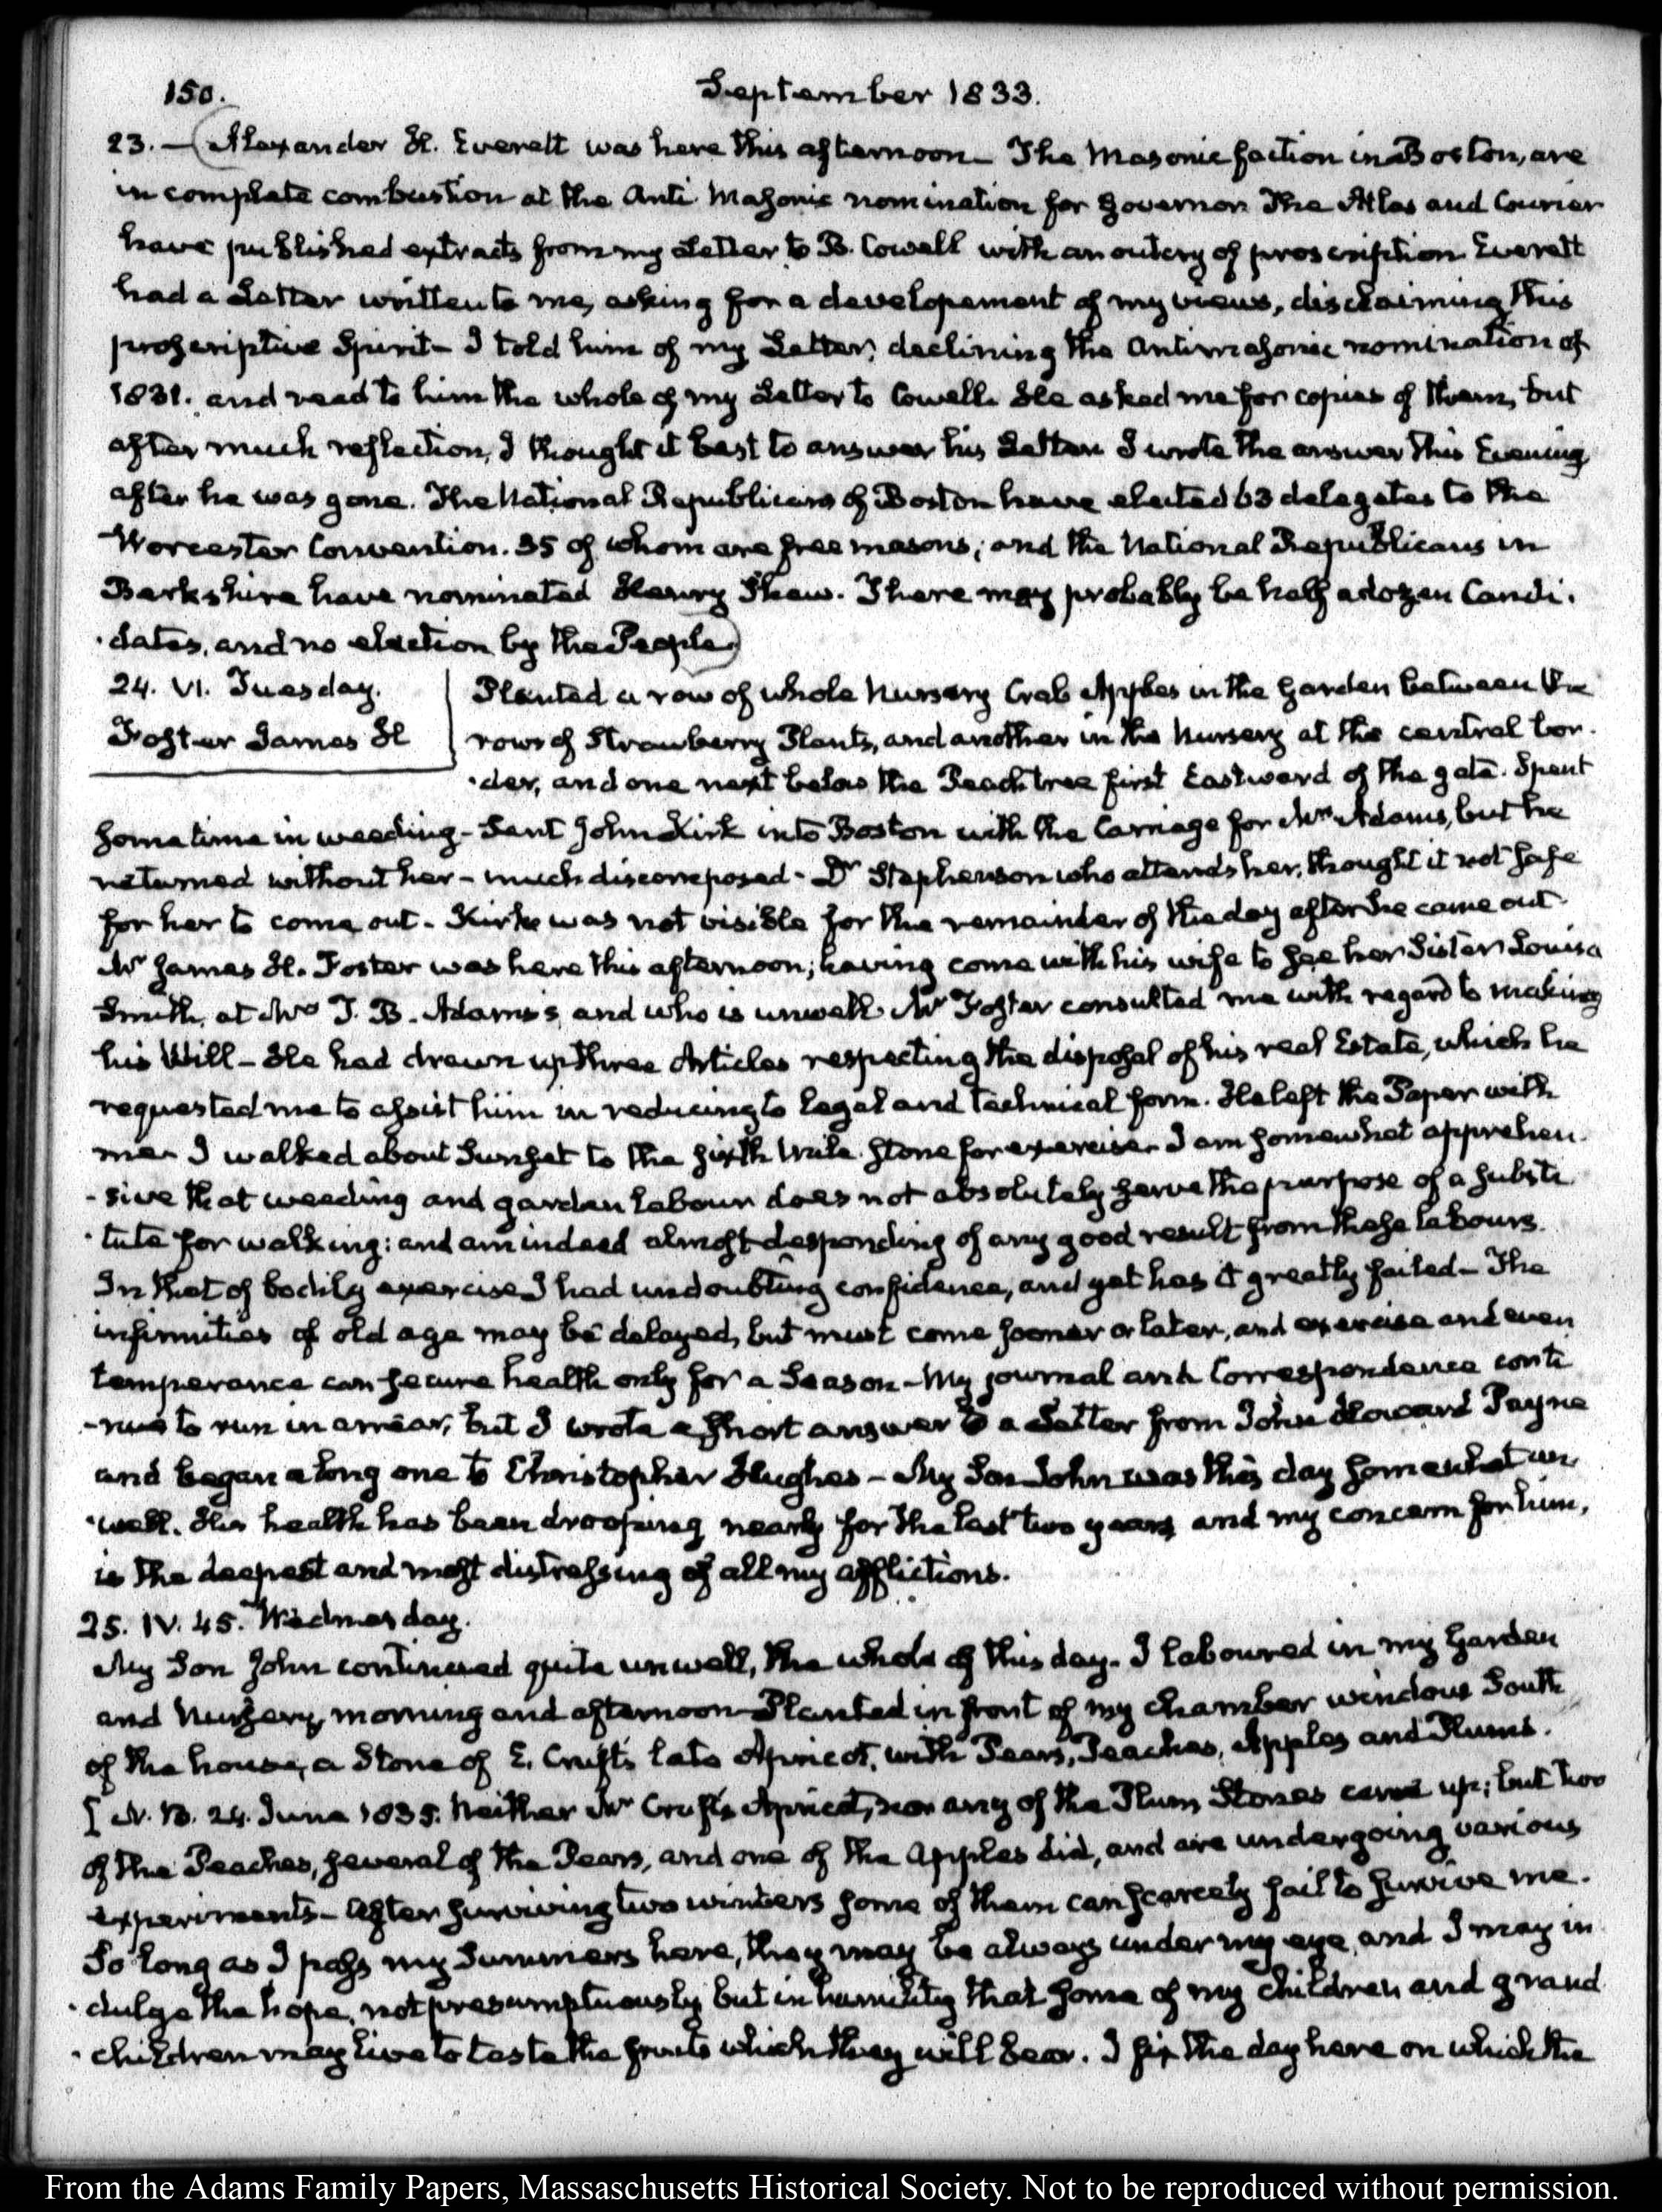 150. September 1833.
23. — (Alexander H. Everett was here this afternoon— The Masonic faction in Boston, are
in complete combustion at the Anti Masonic nomination for Governor The Atlas and Courier
have published extracts from my Letter to B. Cowell with an outcry of proscription Everett
had a Letter written to me, asking for a developement of my views, disclaiming this
proscriptive Spirit— I told him of my Letter, declining the Antimasonic nomination of
1831. and read to him the whole of my Letter to Cowell. He asked me for copies of them, but
after much reflection, I thought it best to answer his Letter I wrote the answer this Evening
after he was gone. The National Republicans of Boston have elected 63 delegates to the
Worcester Convention. 35 of whom are free masons; and the National Republicans in
Berkshire have nominated Henry Shaw. There may probably be half a dozen Candi-
-dates, and no election by the People)
24. VI. Tuesday. Planted a row of whole Nursery Crab Apples in the Garden between the
Foster James H rows of Strawberry Plants, and another in the Nursery at the central bor-
-der, and one next below the Peach tree first Eastward of the gate. Spent
some time in weeding— Sent John Kirk into Boston with the Carriage for Mrs Adams, but he
returned without her— much discomposed— Dr Stephenson who attends her, thought it not safe
for her to come out— Kirke was not visible for the remainder of the day after he came out.
Mr James H. Foster was here this afternoon; having come with his wife to see her Sister Louisa
Smith, at Mrs T. B. Adams's and who is unwell. Mr Foster consulted me with regard to making
his Will— He had drawn up three Articles respecting the disposal of his real Estate, which he
requested me to assist him in reducing to legal and technical form. He left the Paper with
me— I walked about Sunset to the sixth Mile stone for exercise— I am somewhat apprehen-
-sive that weeding and garden labour does not absolutely serve the purpose of a substi-
-tute for walking: and am indeed almost desponding of any good result from these labours.
In that of bodily exercise I had undoubting confidence, and yet has it greatly failed— The
infirmities of old age may be delayed, but must come sooner or later, and exercise and even
temperance can secure health only for a Season— My journal and Correspondence conti-
-nue to run in arrear, but I wrote a short answer to a Letter from John Howard Payne
and began a long one to Christopher Hughes— My Son John was this day somewhat un-
-well. His health has been drooping nearly for the last two years and my concern for him,
is the deepest and most distressing of all my afflictions.
25. IV. 45. Wednesday.
My Son John continued quite unwell, the whole of this day. I laboured in my Garden
and Nursery, morning and afternoon— Planted in front of my chamber windows South
of the house, a Stone of E. Cruft's late Apricot, with Pears, Peaches, Apples and Plums.
[N. B. 24. June 1835. Neither Mr Cruft's Apricot, nor any of the Plum Stones came up; but two
of the Peaches, several of the Pears, and one of the Apples did, and are undergoing various
experiments— After surviving two winters some of them can scarcely fail to survive me.
So long as I pass my Summers here, they may be always under my eye, and I may in-
-dulge the hope, not presumptuously but in humility that some of my children and grand
-children may live to taste the fruits which they will bear. I fix the day here on which the
From the Adams Family Papers, Massaschusetts Historical Society. Not to be reproduced without permission.